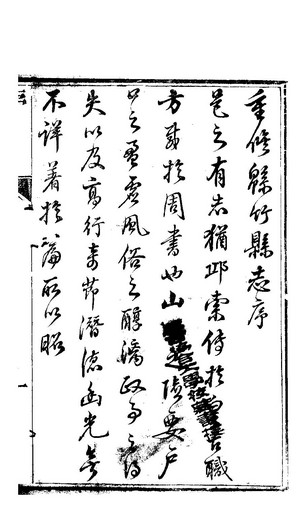 重修緜竹縣志序
邑之有志猶邱索傳於 職
方載於周書也山 險要戶
口之盈虛風俗之醇漓政事之得
失以及高行奇節潛德幽光無
不詳著於篇所以昭